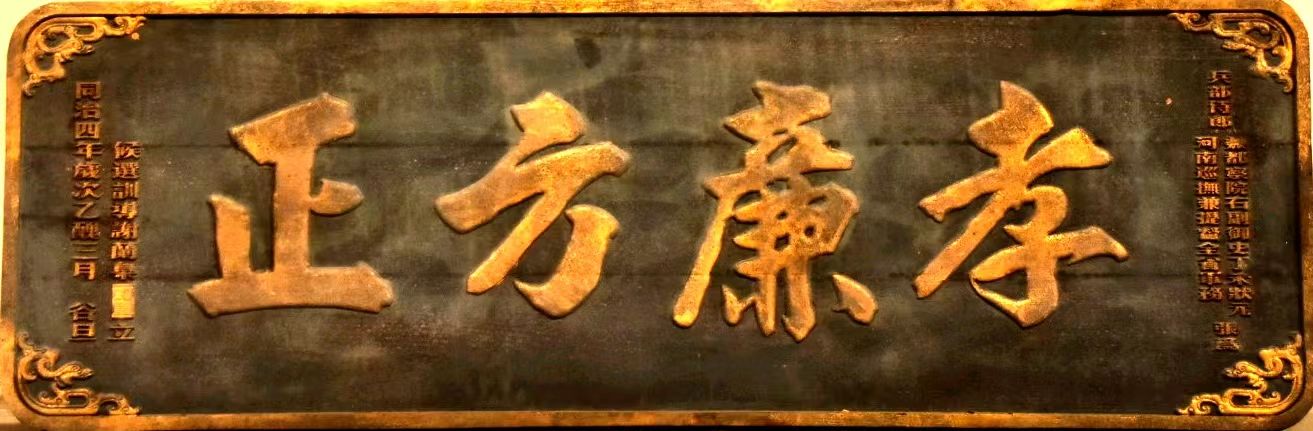 兵部侍郎兼都察院右副御史丁未狀元
河南巡撫兼提督全省軍務 張為
孝廉方正
候選訓導謝蘭 立
同治四年歲次乙酉三月 谷旦